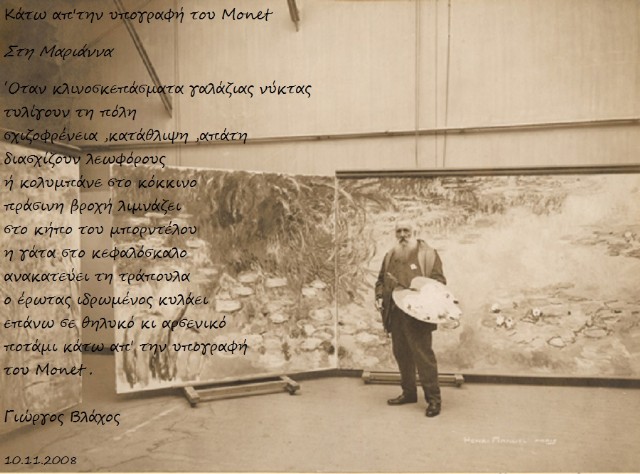 Κάτω απ'την υπογραφή του Monet
Στη Μαριάννα
'Οταν κλινοσκεπάσματα γαλάζιας νύκτας
τυλίγουν τη πόλη
σχιζοφρένεια ,κατάθλιψη ,απάτη
διασχίζουν λεωφόρους
ή κολυμπάνε στο κόκκινο
πράσινη βροχή λιμνάζει
στο κήπο του μπορντέλου
η γάτα στο κεφαλόσκαλο
ανακατεύει τη τράπουλα
ο έρωτας ιδρωμένος κυλάει
επάνω σε θηλυκό κι αρσενικό
ποτάμι κάτω απ' την υπογραφή
του Monet .
Γιώργος Βλάχος
10.11.2008